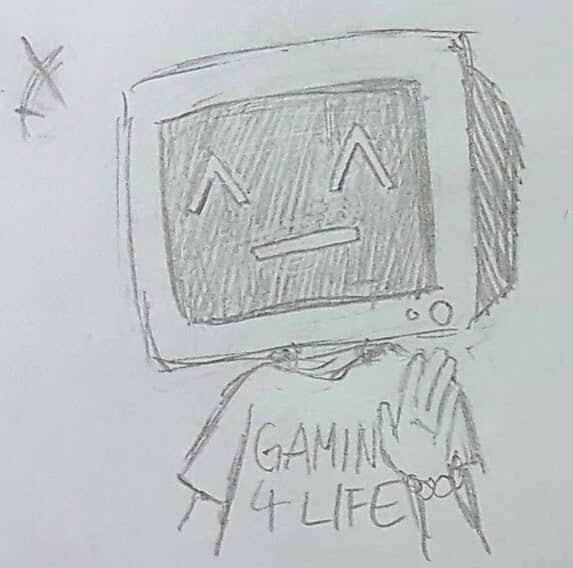 GAMIN
4 LIFE